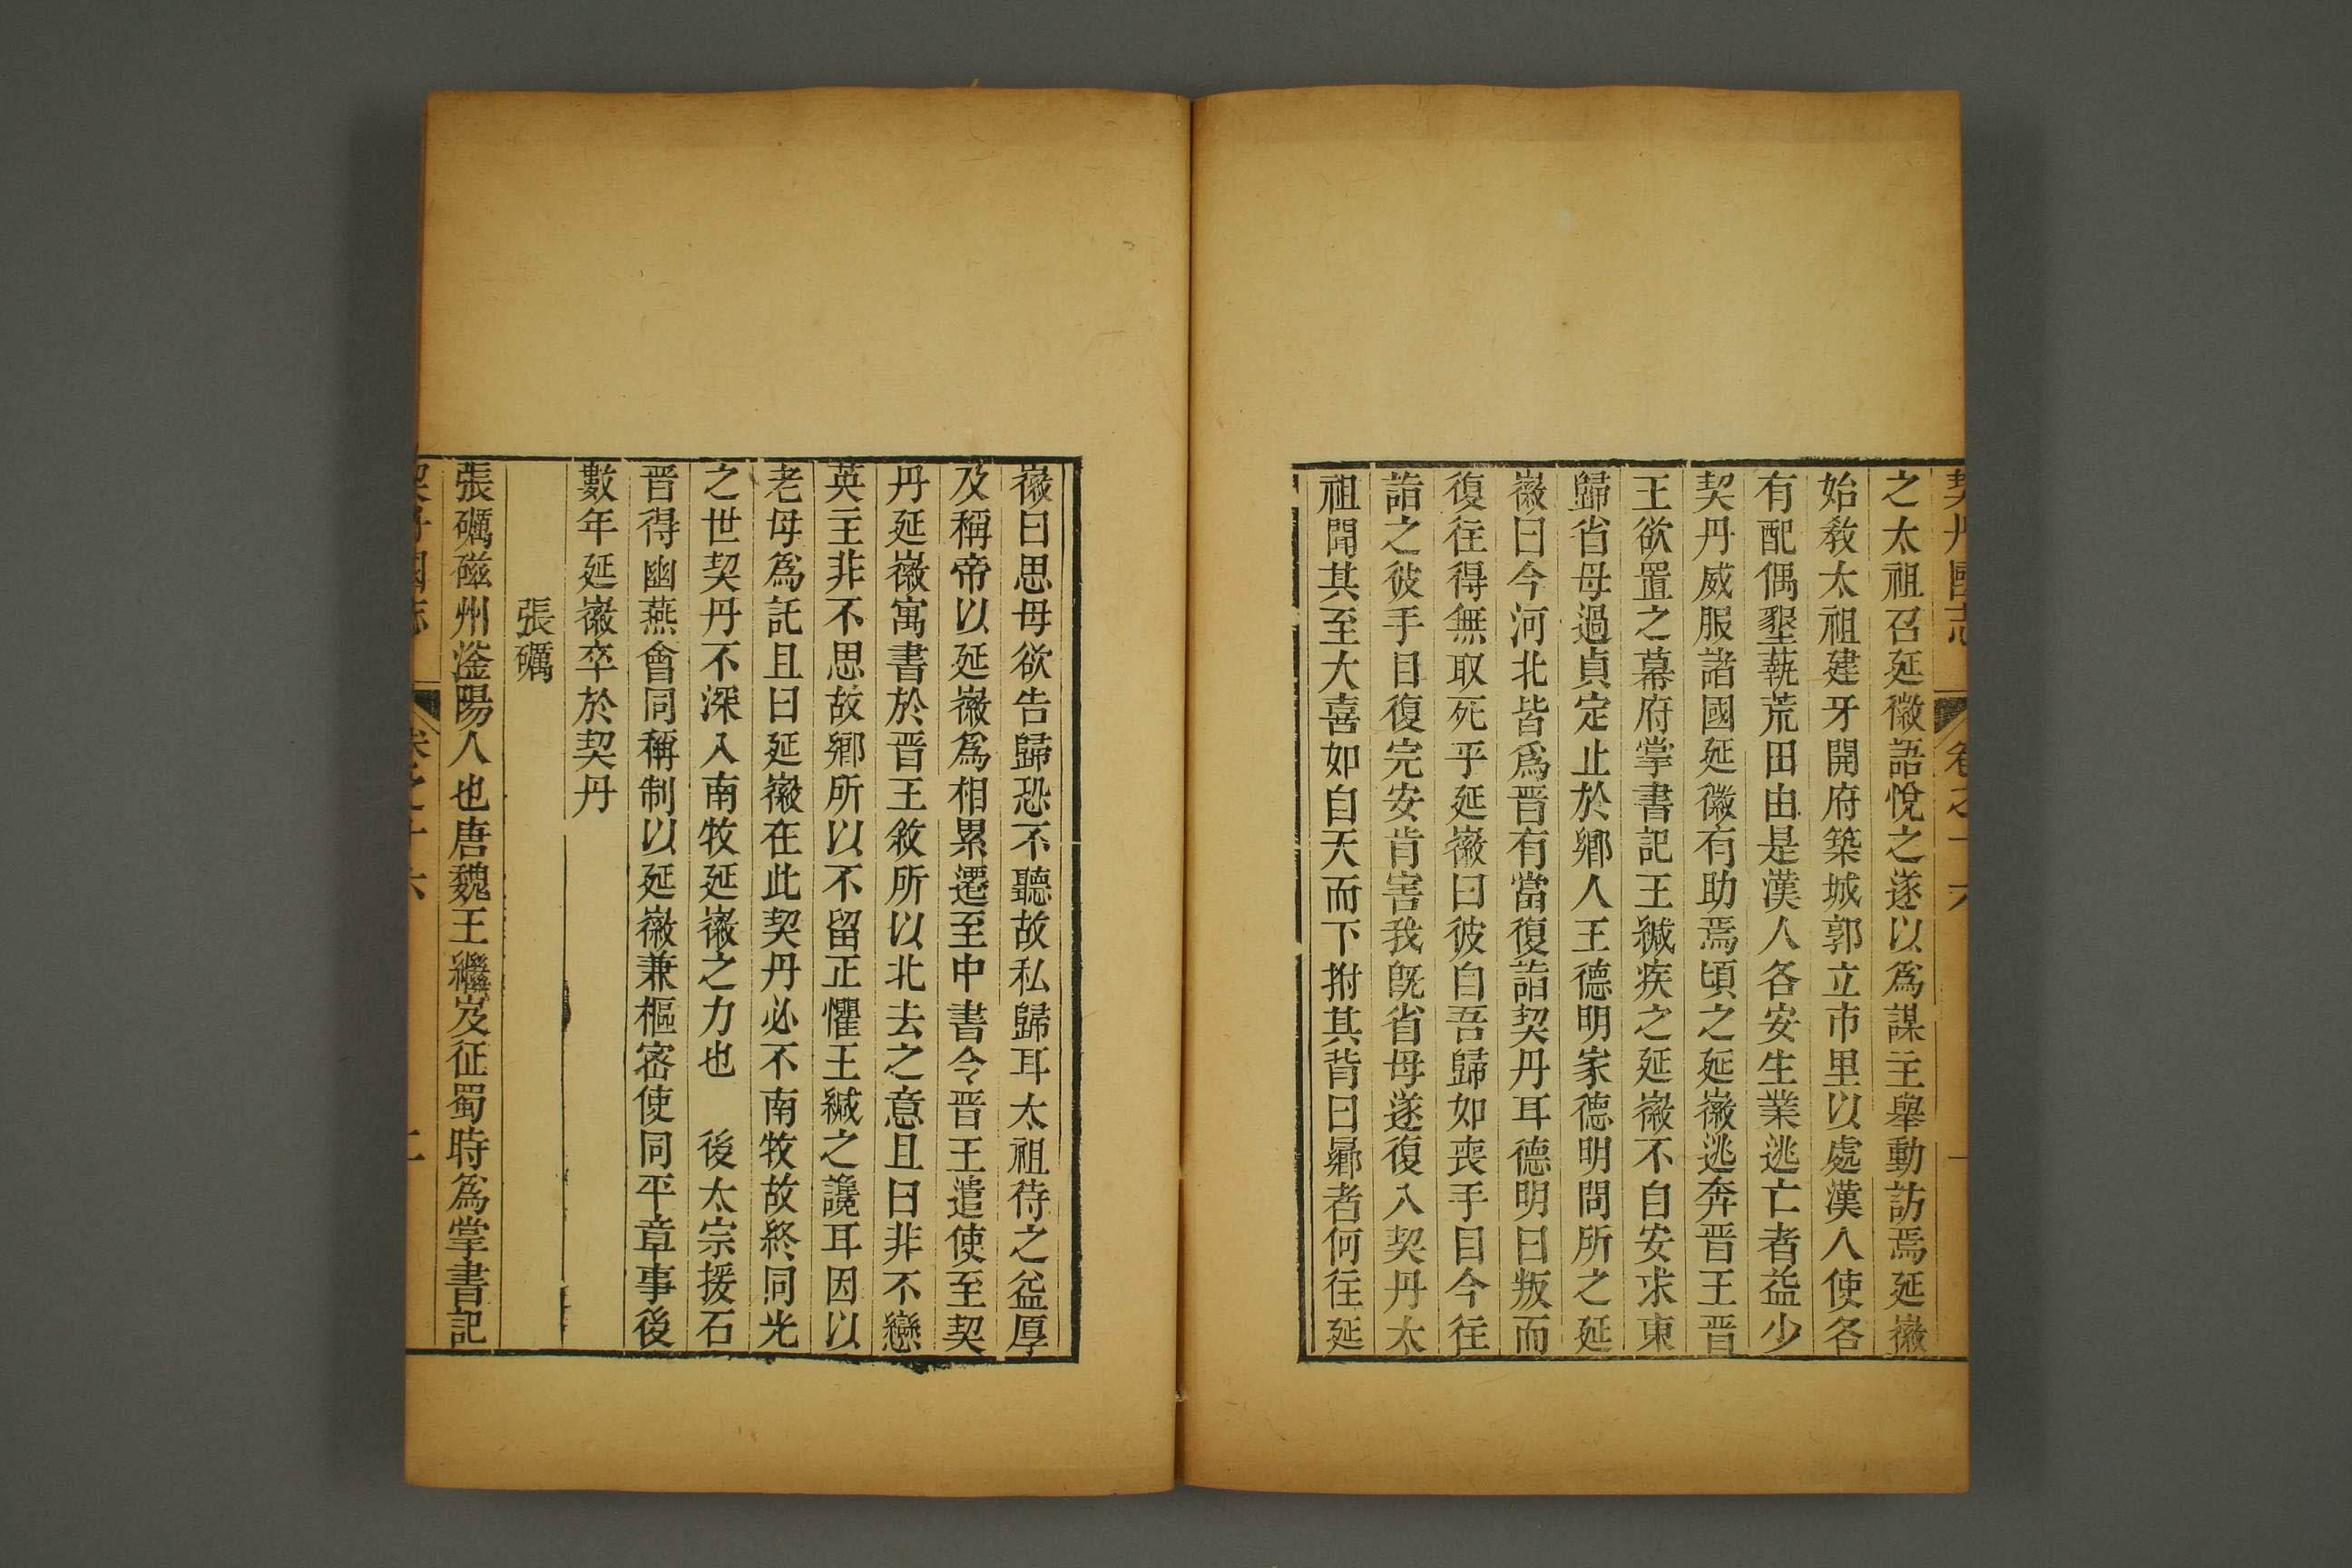 契丹國志 卷之十六 一
之太祖召延徽語悅之遂以爲謀主舉動訪焉延徽
始敎太祖建牙開府築城郭立市里以處漢人使各
有配偶墾蓺荒田由是漢人各安生業逃亡者益少
契丹威服諸國延徽有助焉頃之延徽逃奔晉王晉
王欲置之幕府掌書記王緘疾之延徽不自安求東
歸省母過貞定止於鄉人王德明家德明問所之延
徽曰今河北皆爲晉有當復詣契丹耳德明曰叛而
復往得無取死乎延徽曰彼自吾歸如喪手目今往
詣之彼手目復完安肯害我旣省母遂復入契丹太
祖聞其至大喜如自天而下拊其背曰曏者何往延
徽曰思母欲告歸恐不聽故私歸耳太祖待之益厚
及稱帝以延徽爲相累遷至中書令晉王遣使至契
丹延徽寓書於晉王敘所以北去之意且曰非不戀
英主非不思故鄉所以不留正懼王緘之讒耳因以
老母爲託且曰延徽在此契丹必不南牧故終同光
之世契丹不深入南牧延徽之力也　後太宗援石
晉得幽燕會同稱制以延徽兼樞密使同平章事後
數年延徽卒於契丹
張礪
張礪磁州滏陽人也唐魏王繼岌征蜀時爲掌書記
契丹國志 卷之十六 二